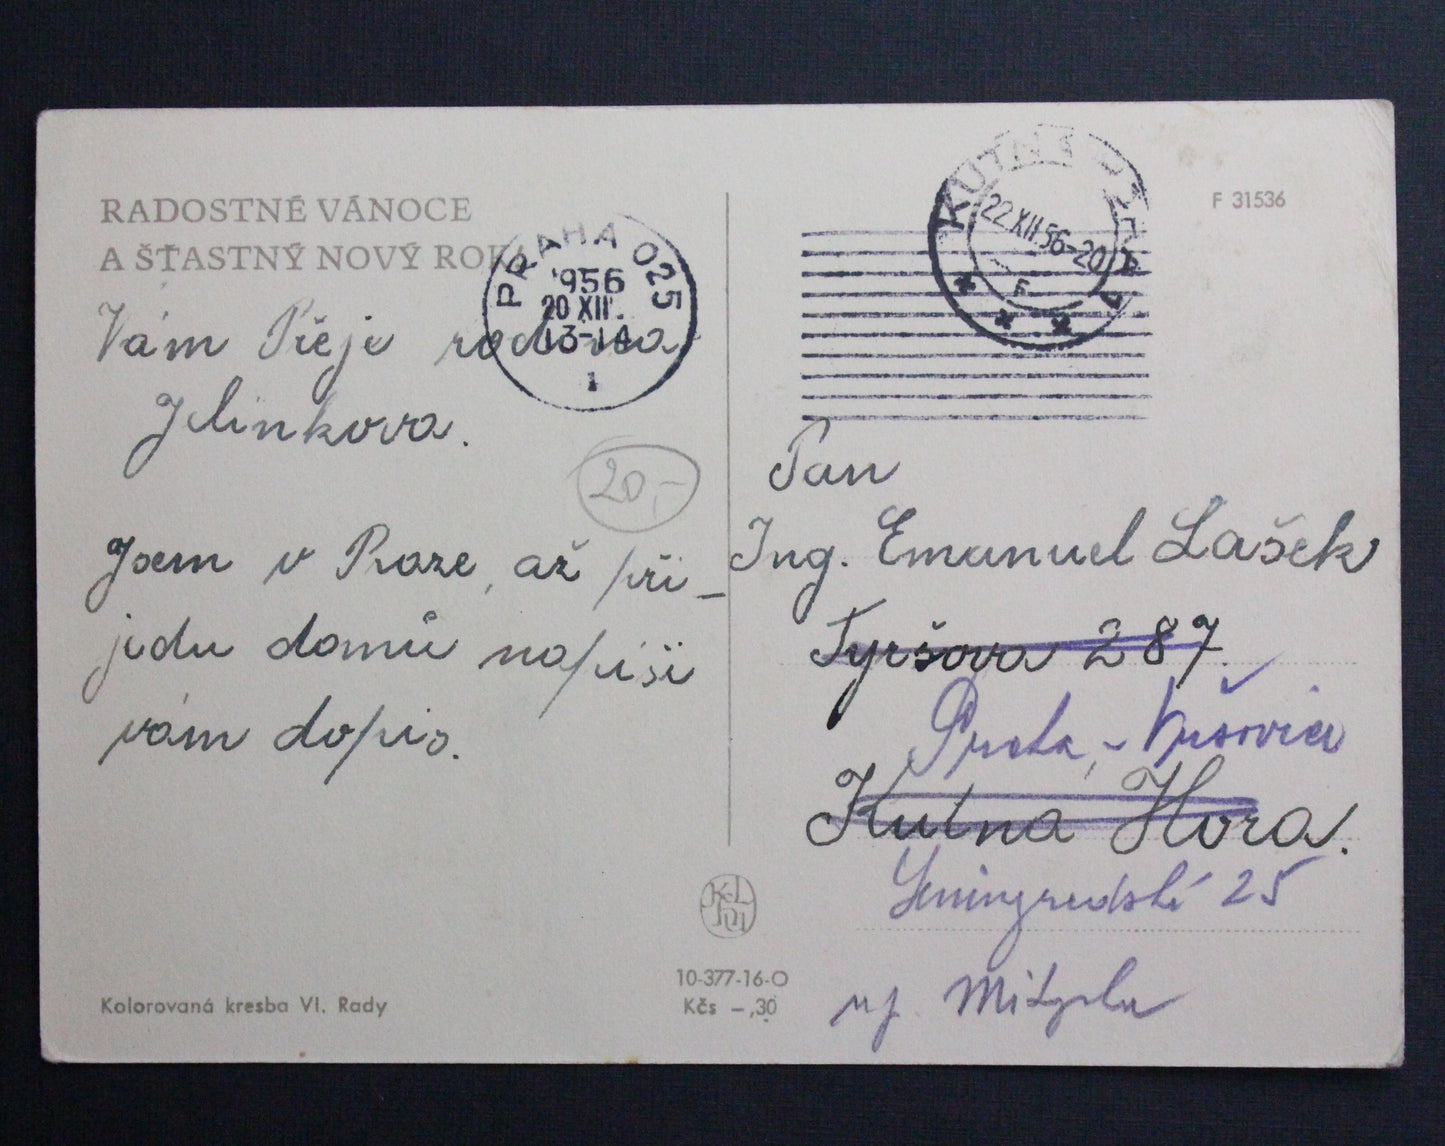 RADOSTNÉ VÁNOCE
A ŠŤASTNÝ NOVÝ ROK
Vám Přeje rodina
Jelinkova.
20,-
Jsem v Praze, až při-
jedu domů napíši
vám dopis.
Kolorovaná kresba Vl. Rady
PRAHA 025
1956
20 XII
13-
1
10-377-16-O
Kčs -,30
KUTNÁ
22 XII 56-20
F 31536
Pan
Ing. Emanuel Lašek
Tyršova 287.
Praha - Vršovice
Kutná Hora.
Leningradská 25